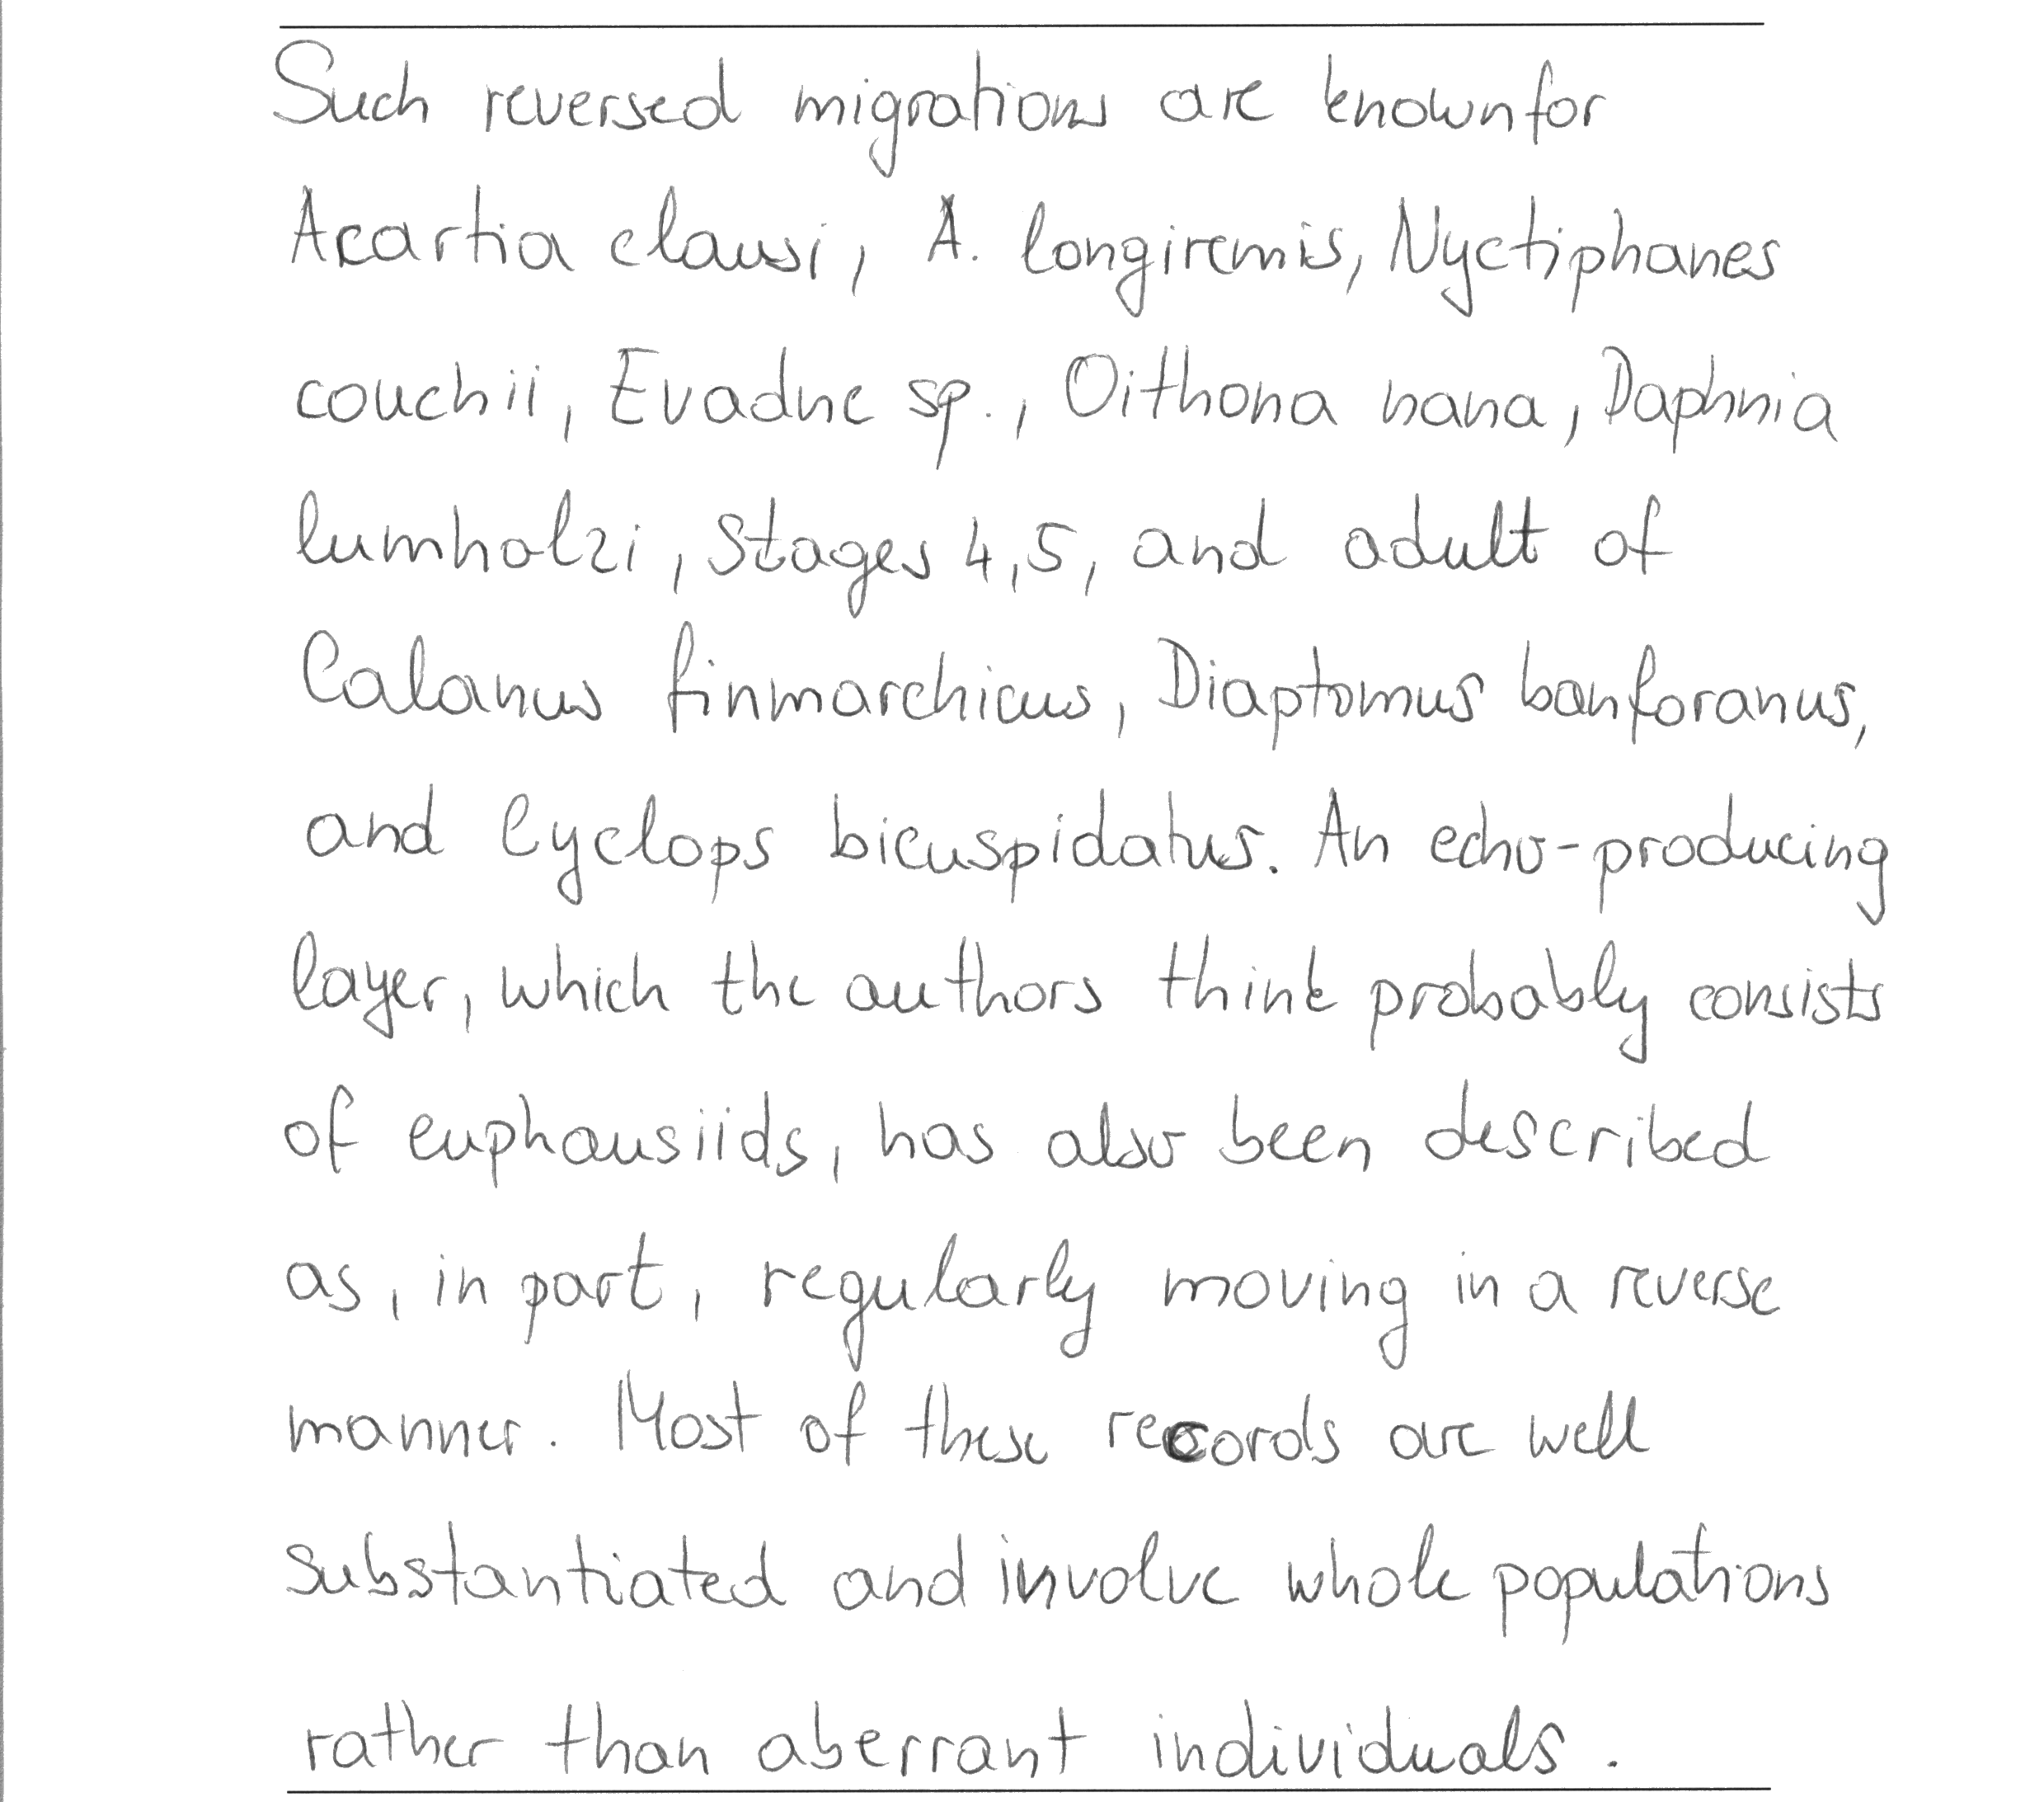 Such reversed migrations are knownfor
Acartia clausi, A. longiremis, Nyctiphanes
couchii, Evadne sp., Oithona nana, Daphnia
lumholzi, stages 4,5, and adult of
Calanus finmarchicus, Diaptomus banforanus,
and Cyclops bicuspidatus. An echo-producing
layer, which the authors think probably consists
of euphausiids, has also been described
as, in part, regularly moving in a reverse
manner. Most of these records are well
substantiated and involve whole populations
rather than aberrant individuals.